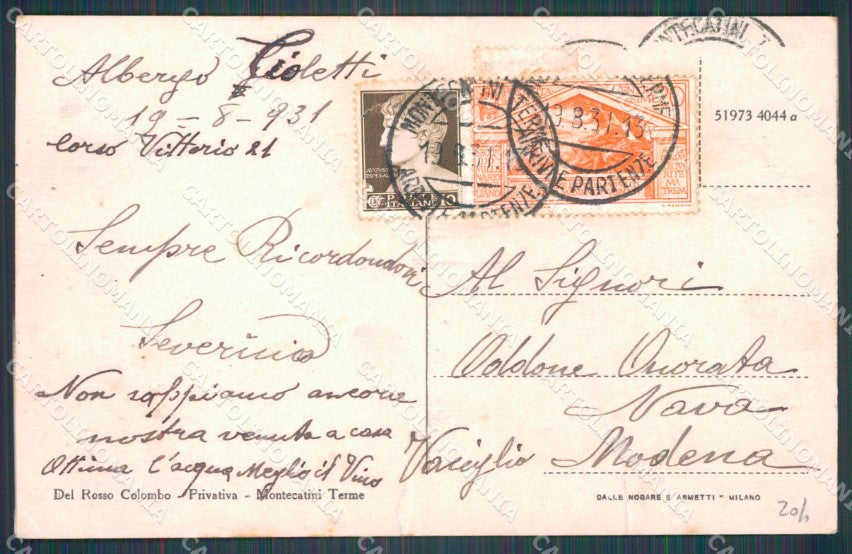 Albergo Gioletti
19-8-931
Corso Vittorio 21
Sempre Ricordandovi
Severina
Non sappiamo ancora
nostra venuta a casa
Ottima l'acqua Meglio il Vino
Del Rosso Colombo - Privativa - Montecatini Terme
MONTECATINI TERME
19.8.31.1
ARRIVI E PARTENZE
POSTE ITALIANE
TERME
19.8.31.13
ARRIVI E PARTENZE
MONTECATINI T
51973 4044 a
Al Signori
Oddone Onorata
Nava
Vaciglio Modena
DALLE NOGARE E ARMETTI - MILANO
20h
CARTOLINOMANIA